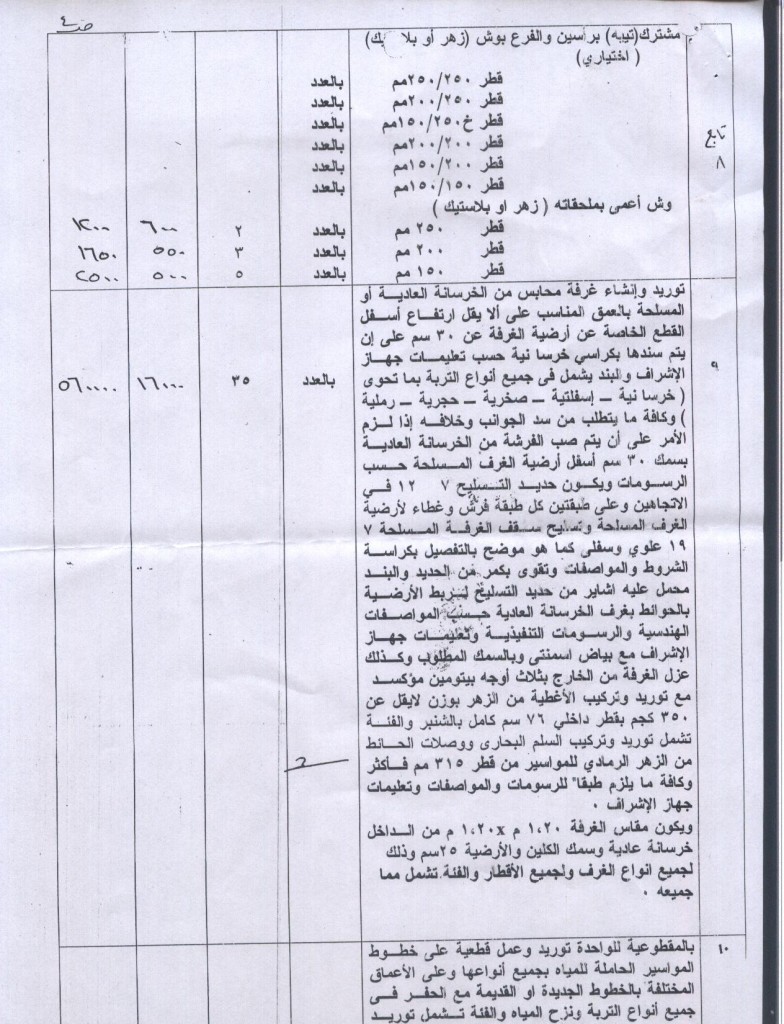 ص٤
مشترك(تيبه) براسين والفرع بوش (زهر أو بلا يك)
( اختياري)
قطر ٢٥٠/٢٥٠مم بالعدد
قطر ٢٠٠/٢٥٠مم بالعدد
قطر خ١٥٠/٢٥٠مم بالعدد
تابع
قطر ٢٠٠/٢٠٠مم بالعدد
٨
قطر ١٥٠/٢٠٠مم بالعدد
قطر ١٥٠/١٥٠مم بالعدد
وش أعمى بملحقاته ( زهر او بلاستيك )
قطر ٢٥٠ مم بالعدد ٢ ٦٠٠ ١٢٠٠
قطر ٢٠٠ مم بالعدد ٣ ٥٥٠ ١٦٥٠
قطر ١٥٠ مم بالعدد ٥ ٥٠٠ ٢٥٠٠
توريد وإنشاء غرفة محابس من الخرسانة العادية أو
المسلحة بالعمق المناسب على ألا يقل ارتفاع أسفل
القطع الخاصة عن أرضية الغرفة عن ٣٠ سم على إن
يتم سندها بكراسي خرسا نية حسب تعليمات جهاز
٩ الإشراف والبند يشمل فى جميع أنواع التربة بما تحوى بالعدد ٣٥ ١٦٠٠٠ ٥٦٠٠٠٠
( خرسا نية – إسفلتية – صخرية – حجرية – رملية
) وكافة ما يتطلب من سد الجوانب وخلافه إذا لزم
الأمر على أن يتم صب الفرشة من الخرسانة العادية
بسمك ٣٠ سم أسفل أرضية الغرف المسلحة حسب
الرسومات ويكون حديد التسليح ٧ ١٢ في
الاتجاهين وعلى طبقتين كل طبقة فرش وغطاء لأرضية
الغرف المسلحة وتسليح سقف الغرفة المسلحة ٧
١٩ علوي وسفلى كما هو موضح بالتفصيل بكراسة
الشروط والمواصفات وتقوى بكمر من الحديد والبند
محمل عليه اشاير من حديد التسليح لربط الأرضية
بالحوائط بغرف الخرسانة العادية حسب المواصفات
الهندسية والرسومات التنفيذية وتعليمات جهاز
الإشراف مع بياض اسمنتى وبالسمك المطلوب وكذلك
عزل الغرفة من الخارج بثلاث أوجه بيتومين مؤكسد
مع توريد وتركيب الأغطية من الزهر بوزن لايقل عن
٣٥٠ كجم بقطر داخلي ٧٦ سم كامل بالشنبر والفئة
تشمل توريد وتركيب السلم البحارى ووصلات الحائط
من الزهر الرمادي للمواسير من قطر ٣١٥ مم فأكثر
وكافة ما يلزم طبقا" للرسومات والمواصفات وتعليمات
جهاز الإشراف ٠
ويكون مقاس الغرفة ١،٢٠ م x١،٢٠ م من الداخل
خرسانة عادية وسمك الكلين والأرضية ٢٥سم وذلك
لجميع انواع الغرف ولجميع الأقطار والفئة تشمل مما
جميعه ٠
١٠ بالمقطوعية للواحدة توريد وعمل قطعية على خطوط
المواسير الحاملة للمياه بجميع أنواعها وعلى الأعماق
المختلفة بالخطوط الجديدة او القديمة مع الحفر فى
جميع أنواع التربة ونزح المياه والفئة تشمل توريد